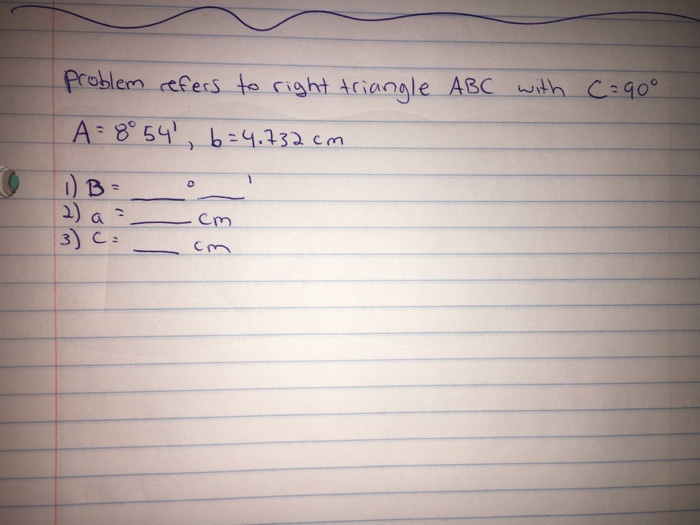 problem refers to right triangle ABC with C=90°
A=8° 54', b=4.732 cm
1) B = ___ ° ___ '
2) a = ___ cm
3) C = ___ cm